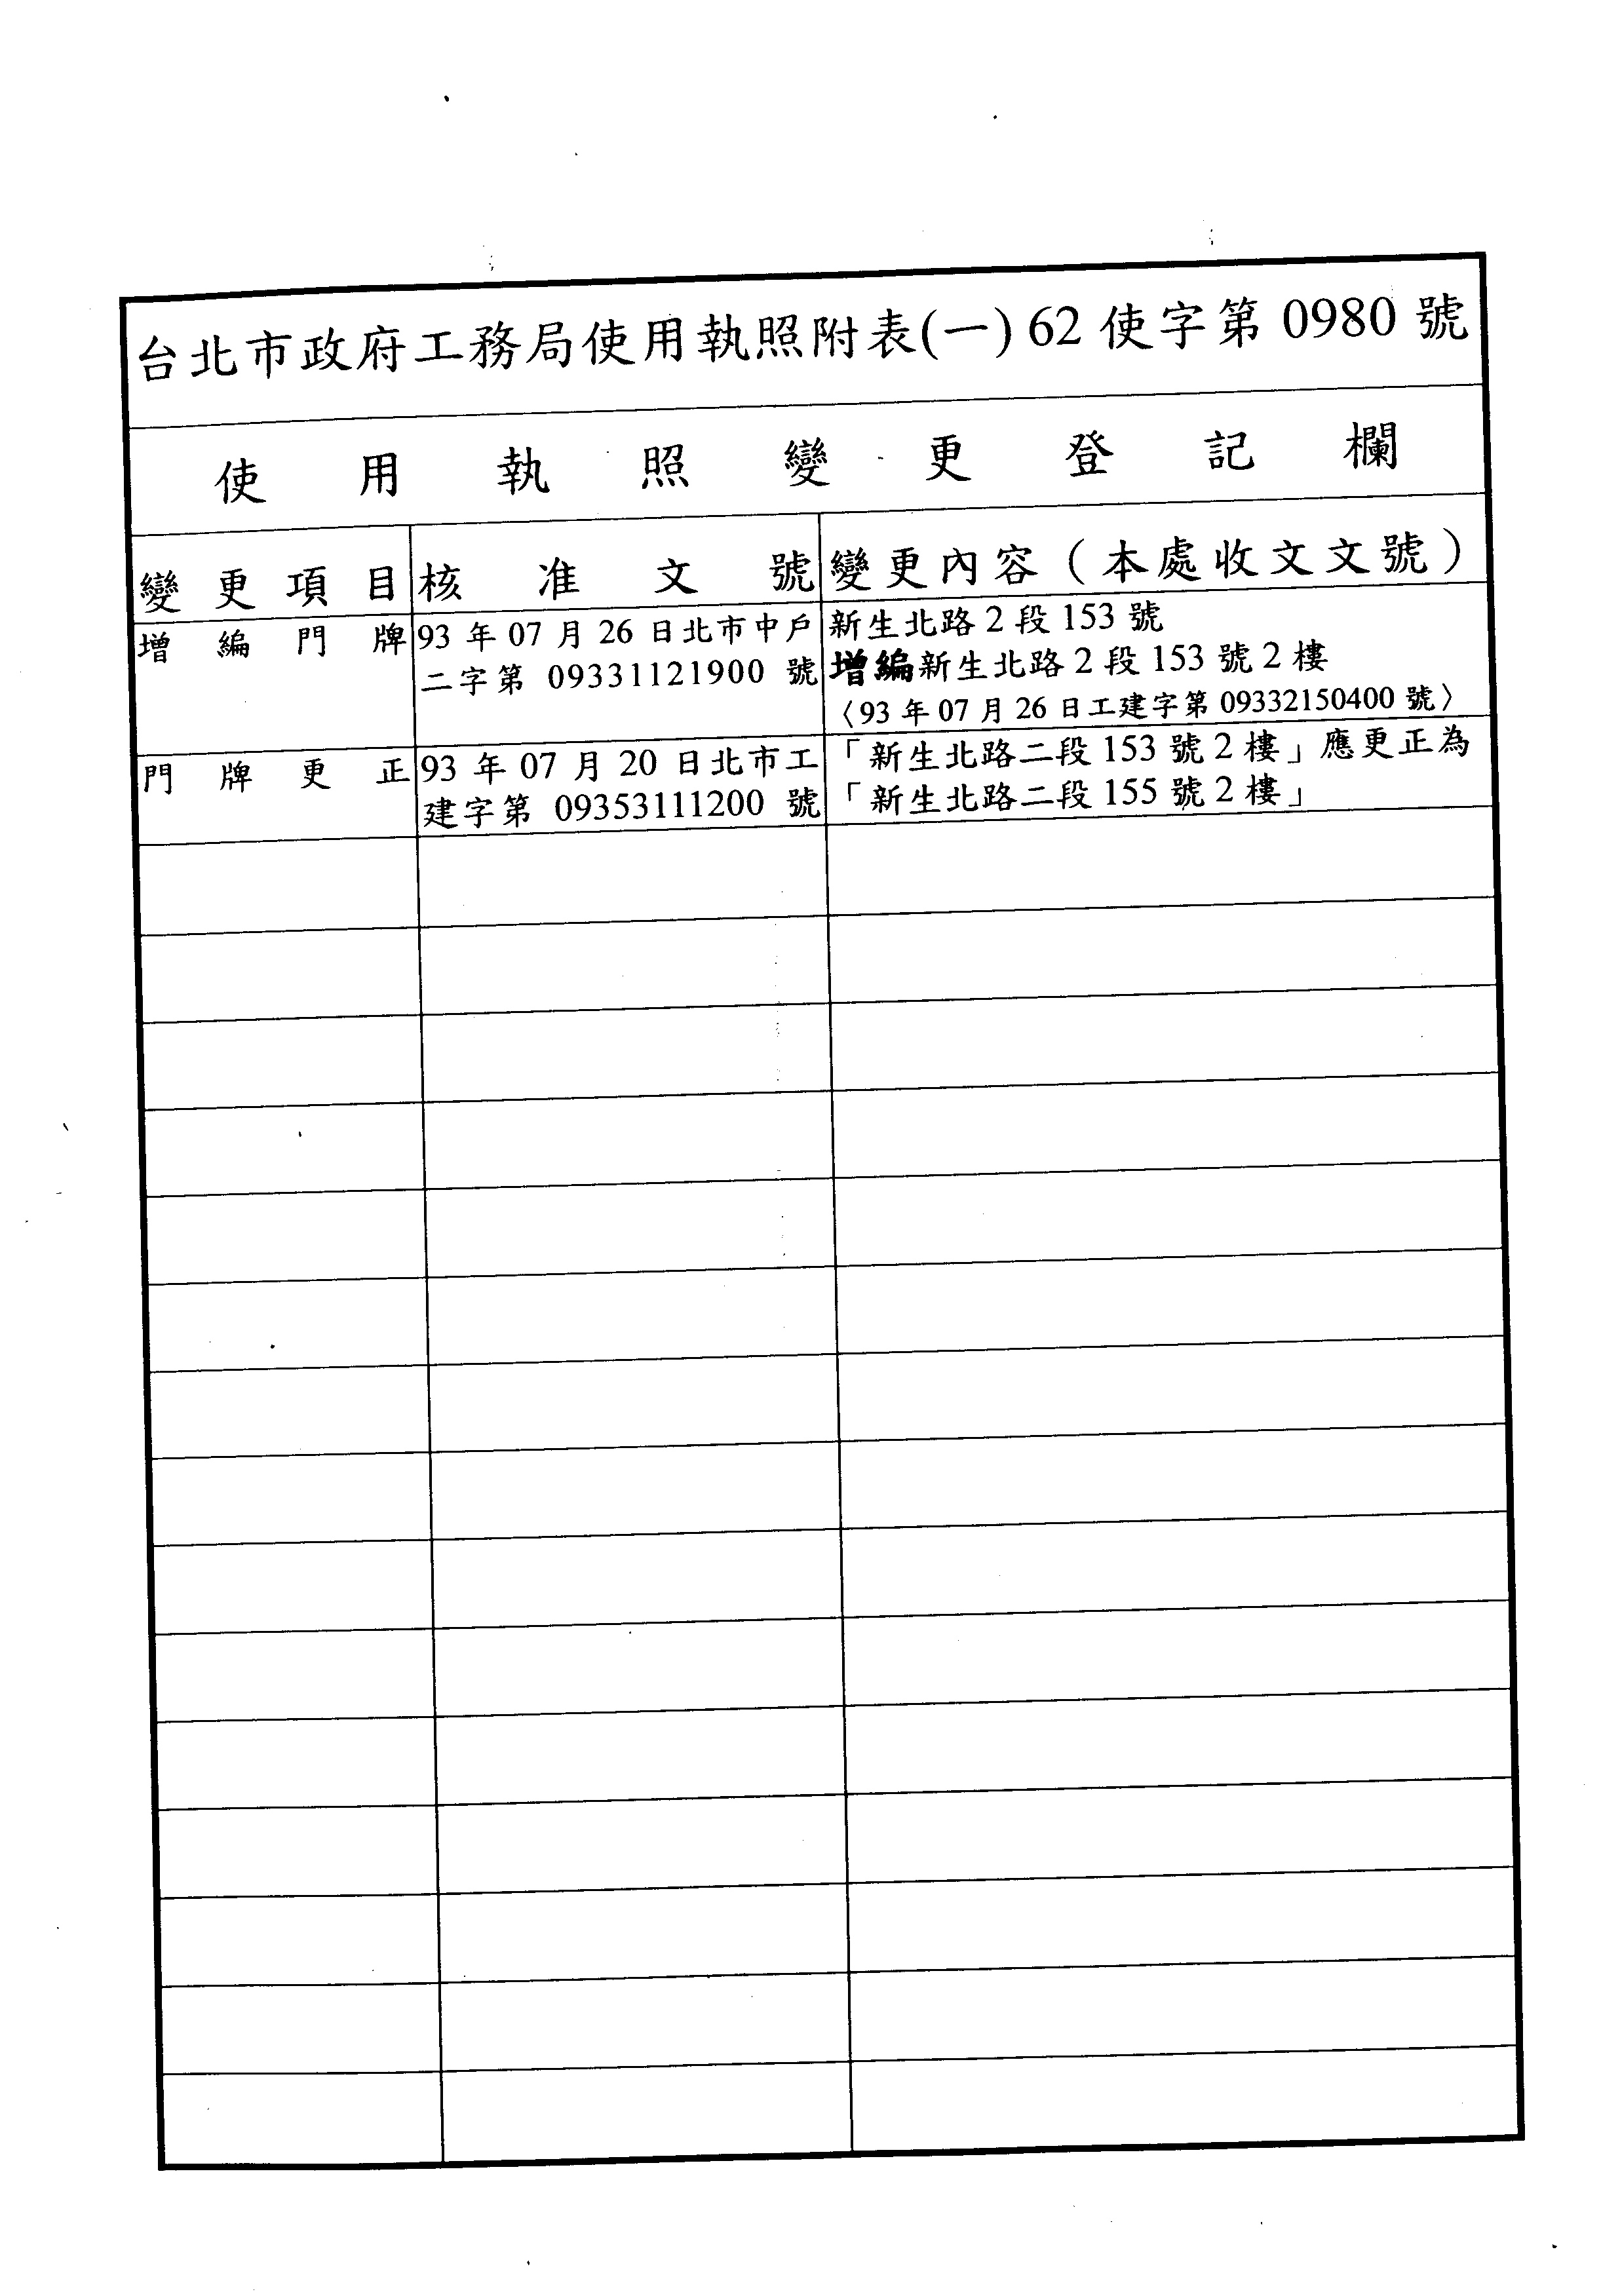 台北市政府工務局使用執照附表(一) 62 使字第 0980 號
使用執照變更登記欄
變更項目 核准文號 變更內容（本處收文文號）
增編門牌 93 年 07 月 26 日北市中戶 新生北路 2 段 153 號
二字第 09331121900 號 增編新生北路 2 段 153 號 2 樓
〈93 年 07 月 26 日工建字第 09332150400 號〉
門牌更正 93 年 07 月 20 日北市工 「新生北路二段 153 號 2 樓」應更正為
建字第 09353111200 號 「新生北路二段 155 號 2 樓」